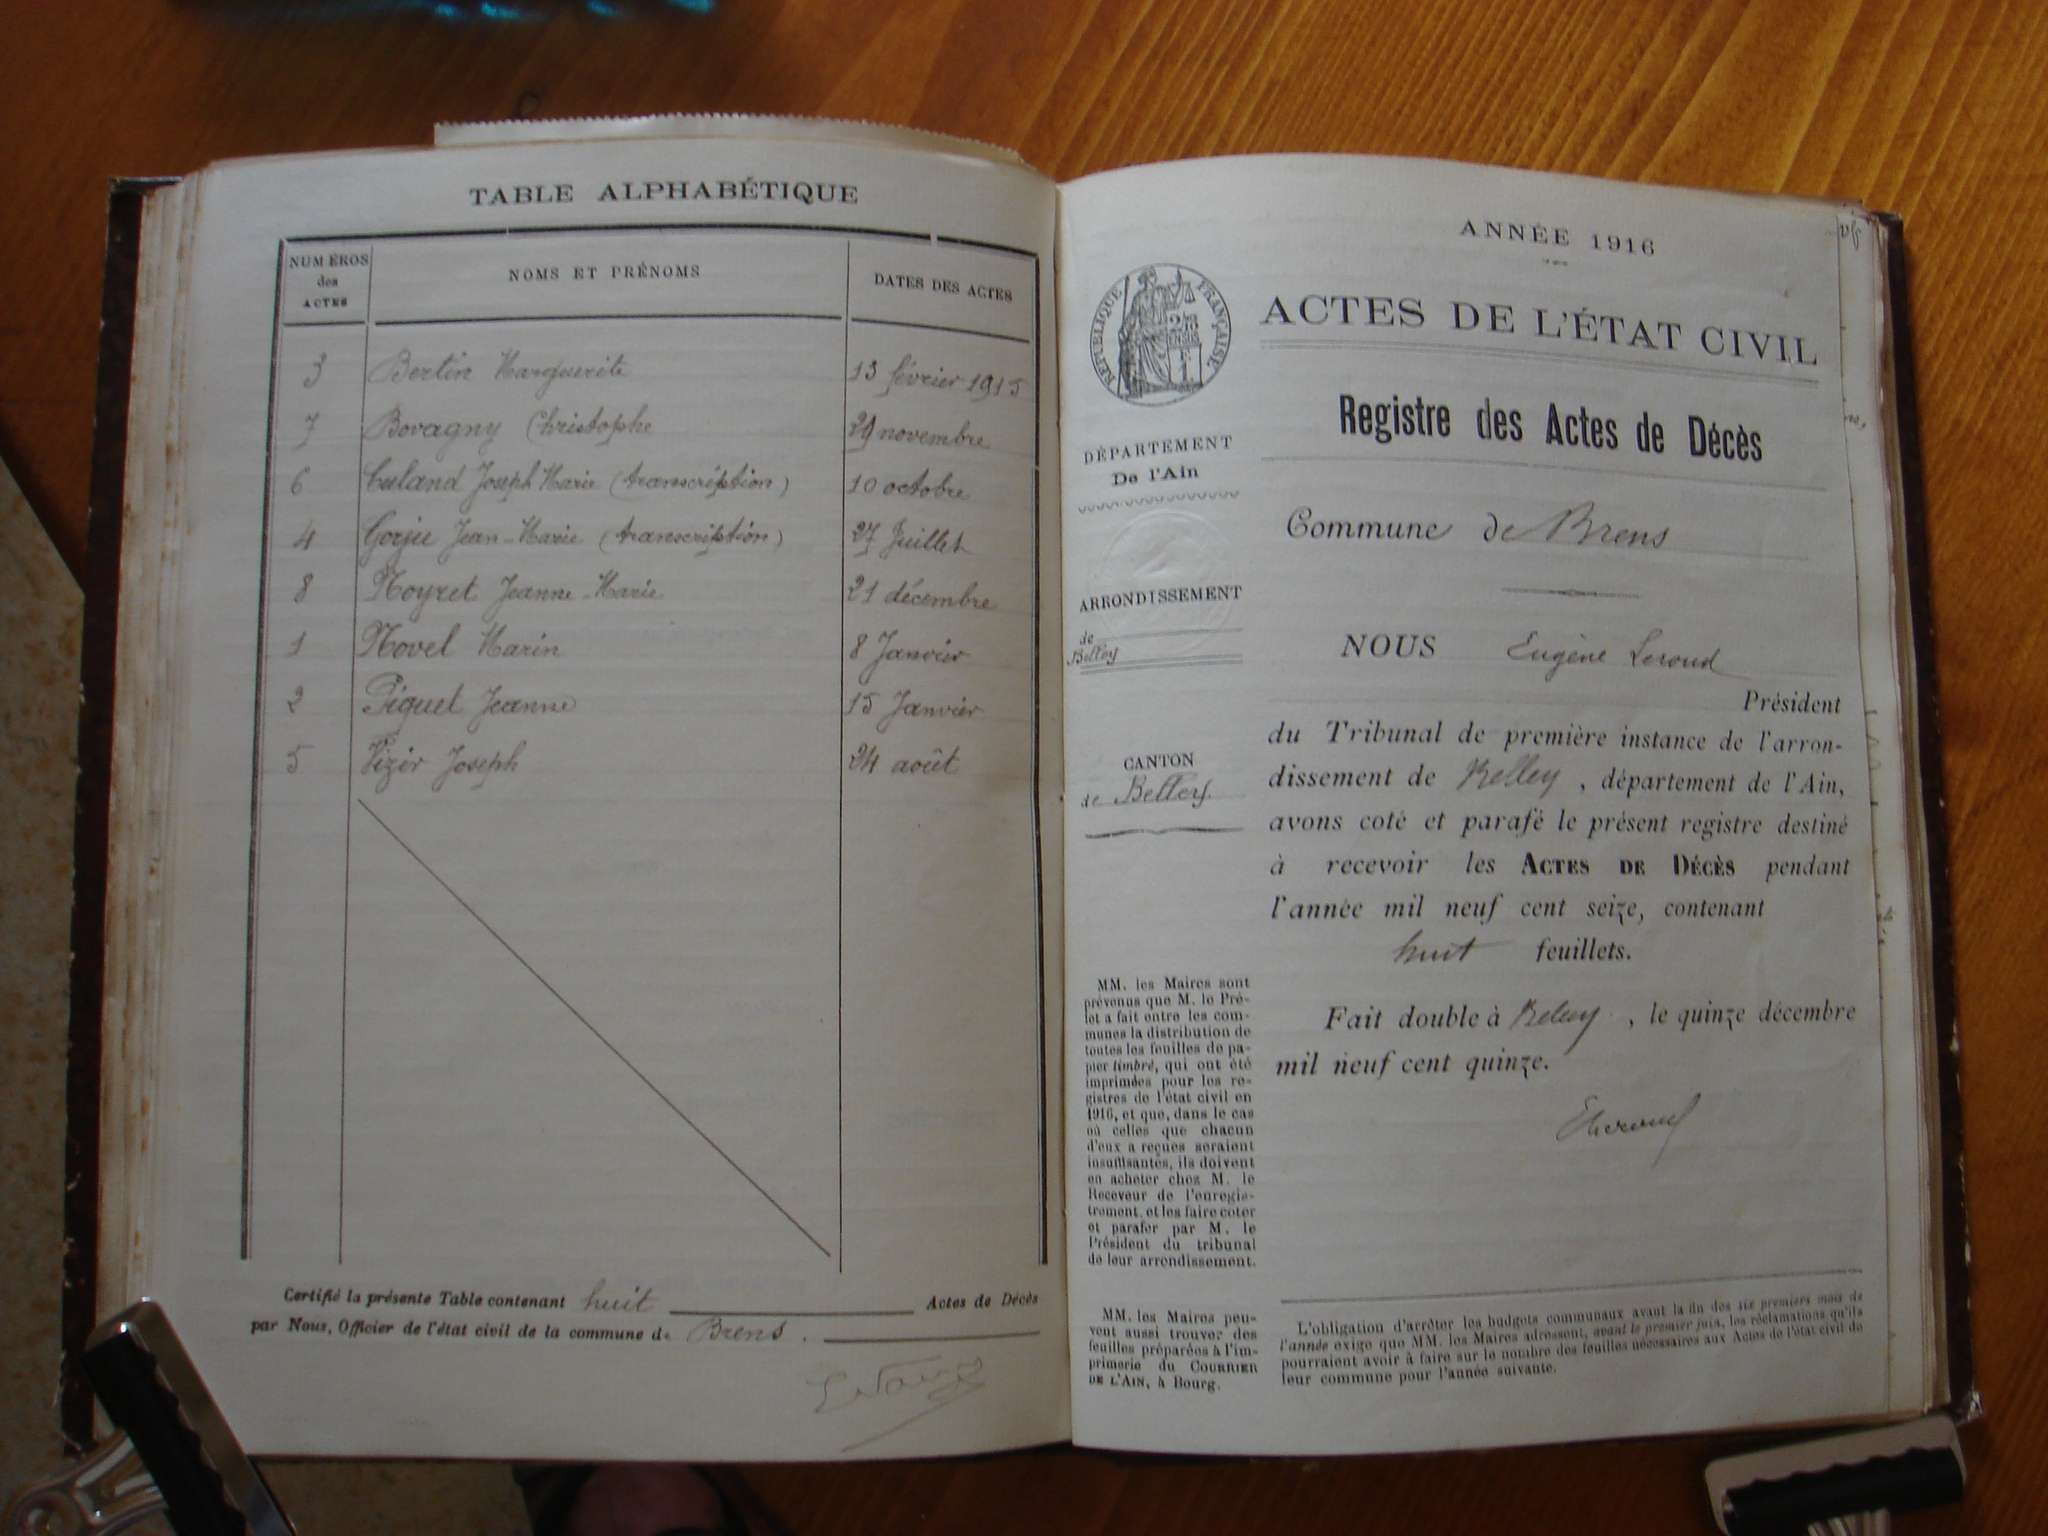 TABLE ALPHABÉTIQUE
NUMÉROS
des
ACTES
NOMS ET PRÉNOMS
DATES DES ACTES
3 Bertin Marguerite 13 février 1915
7 Bovagny Christophe 29 novembre
6 Culand Joseph Marie (transcription) 10 octobre
4 Gorjie Jean-Marie (transcription) 27 Juillet
8 Noyret Jeanne-Marie 21 décembre
1 Novel Marin 8 Janvier
2 Piguet Jeanne 15 Janvier
5 Vizier Joseph 24 août
Certifié la présente Table contenant huit Actes de Décès
par Nous, Officier de l'état civil de la commune de Brens.
ANNÉE 1916
RÉPUBLIQUE FRANÇAISE
ACTES DE L'ÉTAT CIVIL
Registre des Actes de Décès
DÉPARTEMENT
De l'Ain
Commune de Brens
ARRONDISSEMENT
de
Belley
NOUS Eugène Leroud
Président
du Tribunal de première instance de l'arron-
dissement de Belley, département de l'Ain,
avons coté et parafé le présent registre destiné
à recevoir les ACTES DE DÉCÈS pendant
l'année mil neuf cent seize, contenant
huit feuillets.
CANTON
de Belley.
Fait double à Belley, le quinze décembre
mil neuf cent quinze.
MM. les Maires sont
prévenus que M. le Pré-
fet a fait entre les com-
munes la distribution de
toutes les feuilles de pa-
pier timbré, qui ont été
imprimées pour les re-
gistres de l'état civil en
1916, et que, dans le cas
où celles que chacun
d'eux a reçues seraient
insuffisantes, ils doivent
en acheter chez M. le
Receveur de l'enregis-
trement, et les faire coter
et parafer par M. le
Président du tribunal
de leur arrondissement.
MM. les Maires peu-
vent aussi trouver des
feuilles préparées à l'im-
primerie du COURRIER
DE L'AIN, à Bourg.
L'obligation d'arrêter les budgets communaux avant la fin des six premiers mois de
l'année exige que MM. les Maires adressent, avant le premier juin, les réclamations qu'ils
pourraient avoir à faire sur le nombre des feuilles nécessaires aux Actes de l'état civil de
leur commune pour l'année suivante.